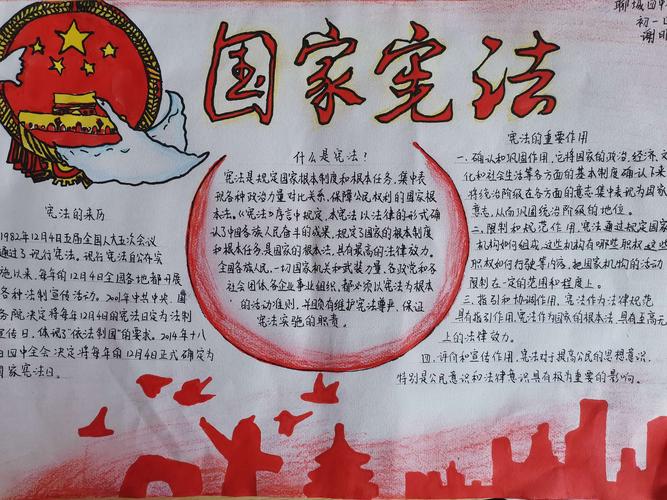 国家宪法
聊城四中
初一
谢
宪法的来历
1982年12月4日五届全国人大五次会议
通过了现行宪法。现行宪法自公布
施以来,每年的12月4日全国各地都开展
各种法制宣传活动。2001年中共中央、国
务院决定将每年12月4日的宪法日定为法制
宣传日,体现了“依法制国”的要求。2014年十八
届四中全会决定将每年的12月4日正式确定为
国家宪法日。
什么是宪法?
宪法是规定国家根本制度和根本任务,集中表
现各种政治力量对比关系,保障公民权利的国家根
本法。《宪法》序言中规定,本宪法以法律的形式确
认了中国各族人民奋斗的成果,规定了国家的根本制度
和根本任务,是国家的根本法,具有最高的法律效力。
全国各族人民、一切国家机关和武装力量、各政党和各
社会团体各企业事业组织,都必须以宪法为根本
的活动准则,并且负有维护宪法尊严、保证
宪法实施的职责。
宪法的重要作用
一、确认和巩固作用,它将国家的政治,经济,文
化和社会生活等多方面的基本制度确认了来
将统治阶级在各方面的意志集中表现为国家
意志,从而巩固统治阶级的地位。
二、限制和规范作用,宪法通过规定国家
机构如何组成,这些机构有哪些职权,这些
职权如何行驶等内容,把国家机构的活动
限制在一定的范围和程度上。
三、指引和协调作用,宪法作为法律规范
具有指引作用,宪法作为国家的根本法,具有至高无
上的法律效力。
四、评价和宣传作用,宪法对于提高公民的思想意识,
特别是公民意识和法律意识具有极为重要的影响。